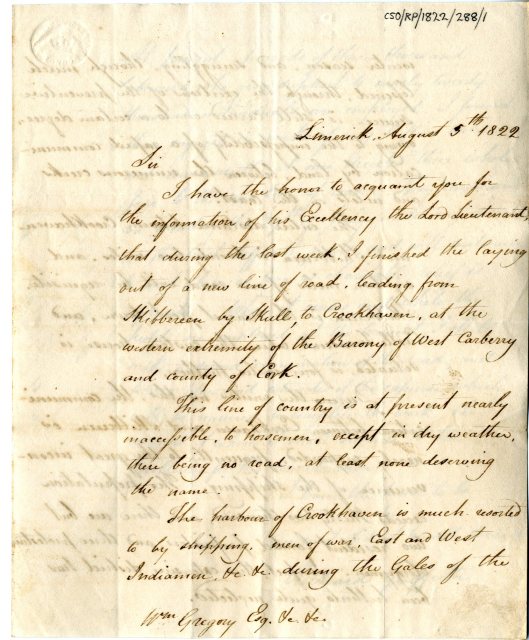 CSO/RP/1822/288/1
Limerick, August 5th 1822
Sir
I have the honor to acquaint you for
the information of his Excellency the Lord Lieutenant,
that during the last week, I finished the laying
out of a new line of road, leading from
Skibbereen by Skull, to Crookhaven, at the
western extremity of the Barony of West Carberry
and county of Cork.
This line of country is at present nearly
inaccessible, to horsemen, except in dry weather,
there being no road, at least none deserving
the name.
The harbour of Crookhaven is much resorted
to by shipping, men of war, East and West
Indiamen, &c. &c. during the Gales of the
Wm Gregory Esq. &c. &c.